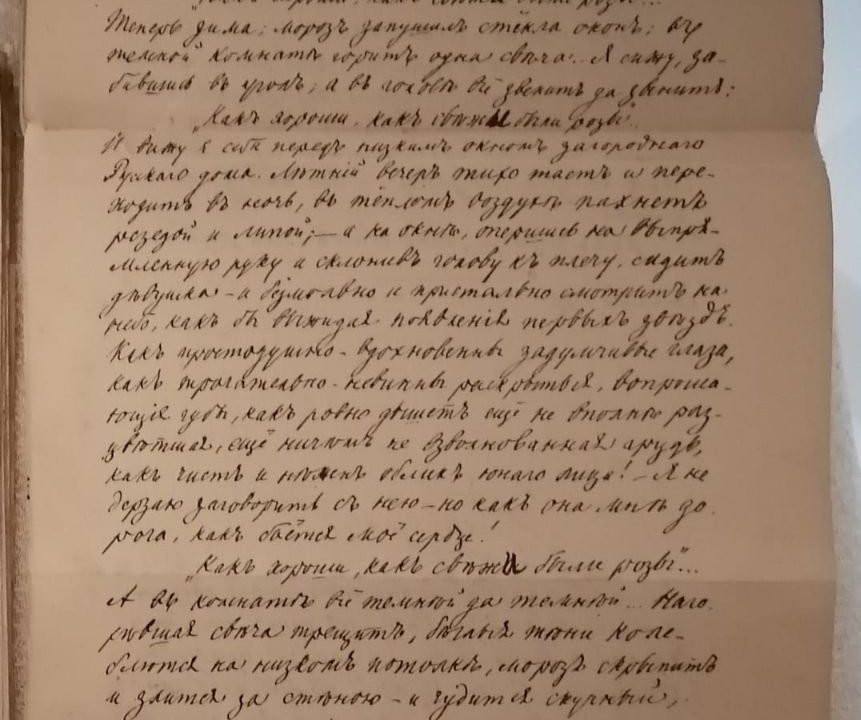 „Какъ хороши, какъ свѣжи были розы“...
Теперь зима; морозъ запушилъ стёкла оконъ; въ
темной комнатѣ горитъ одна свѣча. Я сижу, за-
бившись въ уголъ; а въ головѣ всё звенитъ да звенитъ:
„Какъ хороши, какъ свѣжи были розы“.
И вижу я себя передъ низкимъ окномъ загороднаго
Русскаго дома. Лѣтній вечеръ тихо таетъ и пере-
ходитъ въ ночь, въ тёпломъ воздухѣ пахнетъ
резедой и липой; — а на окнѣ, опершись на выпря-
мленную руку и склонивъ голову къ плечу, сидитъ
дѣвушка — и безмолвно и пристально смотритъ на
небо, какъ бы выжидая появленія первыхъ звѣздъ.
Какъ простодушно-вдохновенны задумчивые глаза,
какъ трогательно-невинны раскрытыя, вопроша-
ющія губы, какъ ровно дышетъ ещё не вполнѣ раз-
цвѣтшая, ещё ничѣмъ не взволнованная грудь,
какъ чистъ и нѣженъ обликъ юнаго лица! — Я не
дерзаю заговорить съ нею — но какъ она мнѣ до
рога, какъ бьётся моё сердце!
„Какъ хороши, какъ свѣжи были розы“...
А въ комнатѣ всё темнѣй да темнѣй... Наго
рѣвшая свѣча трещитъ, бѣглыя тѣни коле-
блются на низкомъ потолкѣ, морозъ скрыпитъ
и злится за стѣною — и чудится скучный,